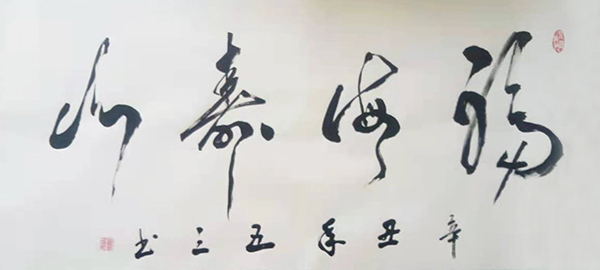 福海寿山
辛丑年五三书